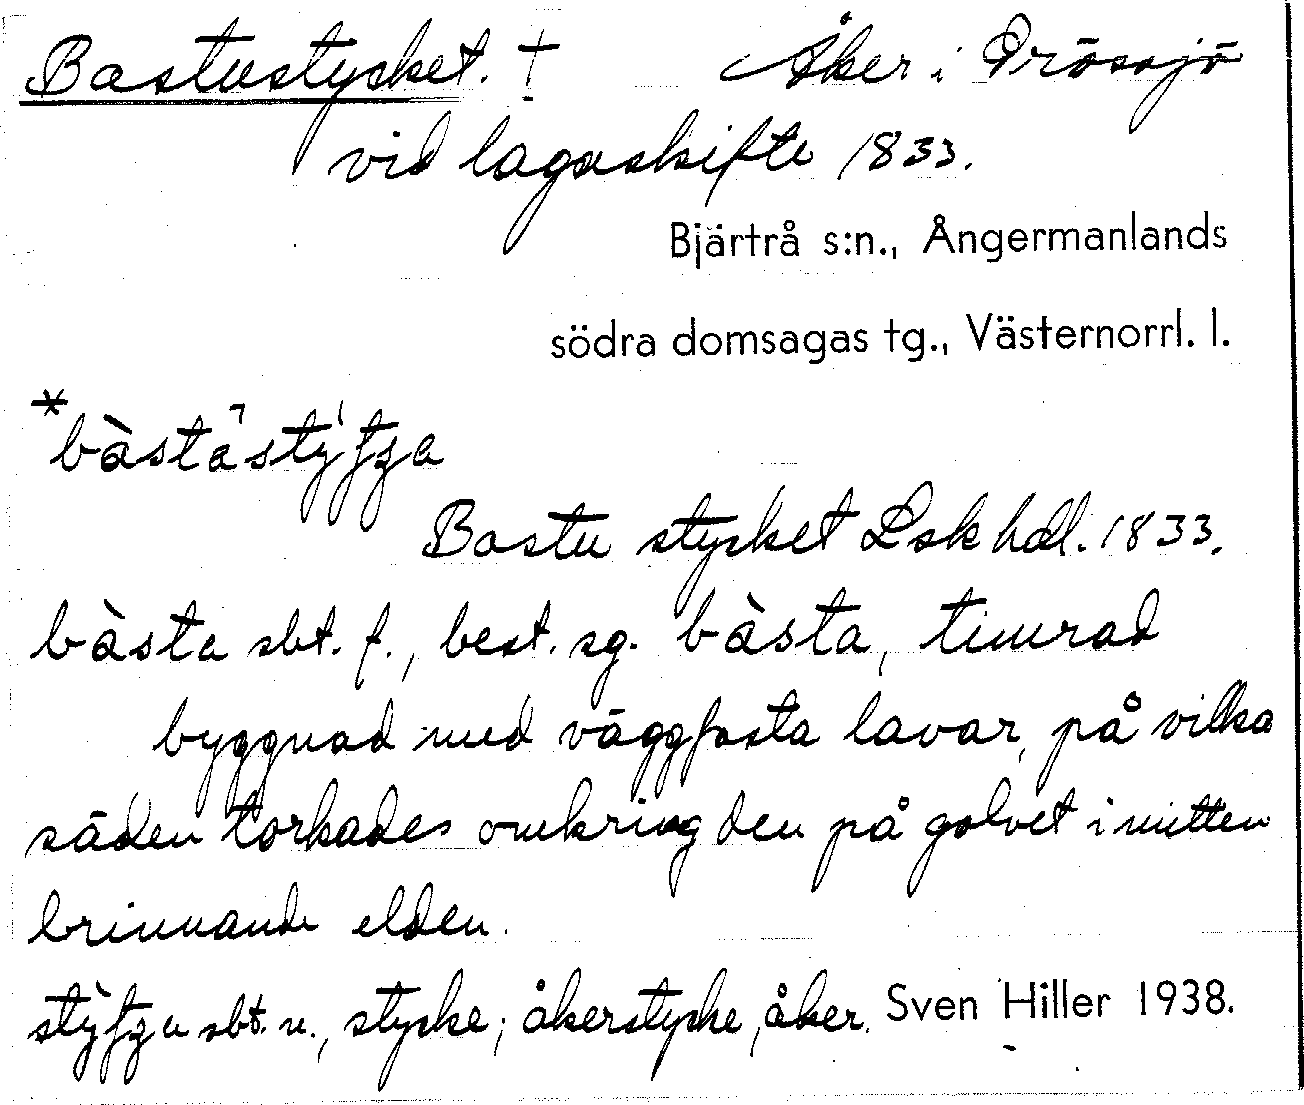 Bastustycket. † Åker i Prössjö
vid lagaskifte 1833.
Bjärtrå s:n., Ångermanlands
södra domsagas tg., Västernorrl. l.
Bastu stycket Lsk hdl. 1833.
bàsta sbt. f., best. sg. bàsta, timrad
byggnad med väggfasta lavar, på vilka
säden torkades omkring den på golvet i mitten
brinnande elden.
sbt. n., stycke; åkerstycke, åker. Sven Hiller 1938.